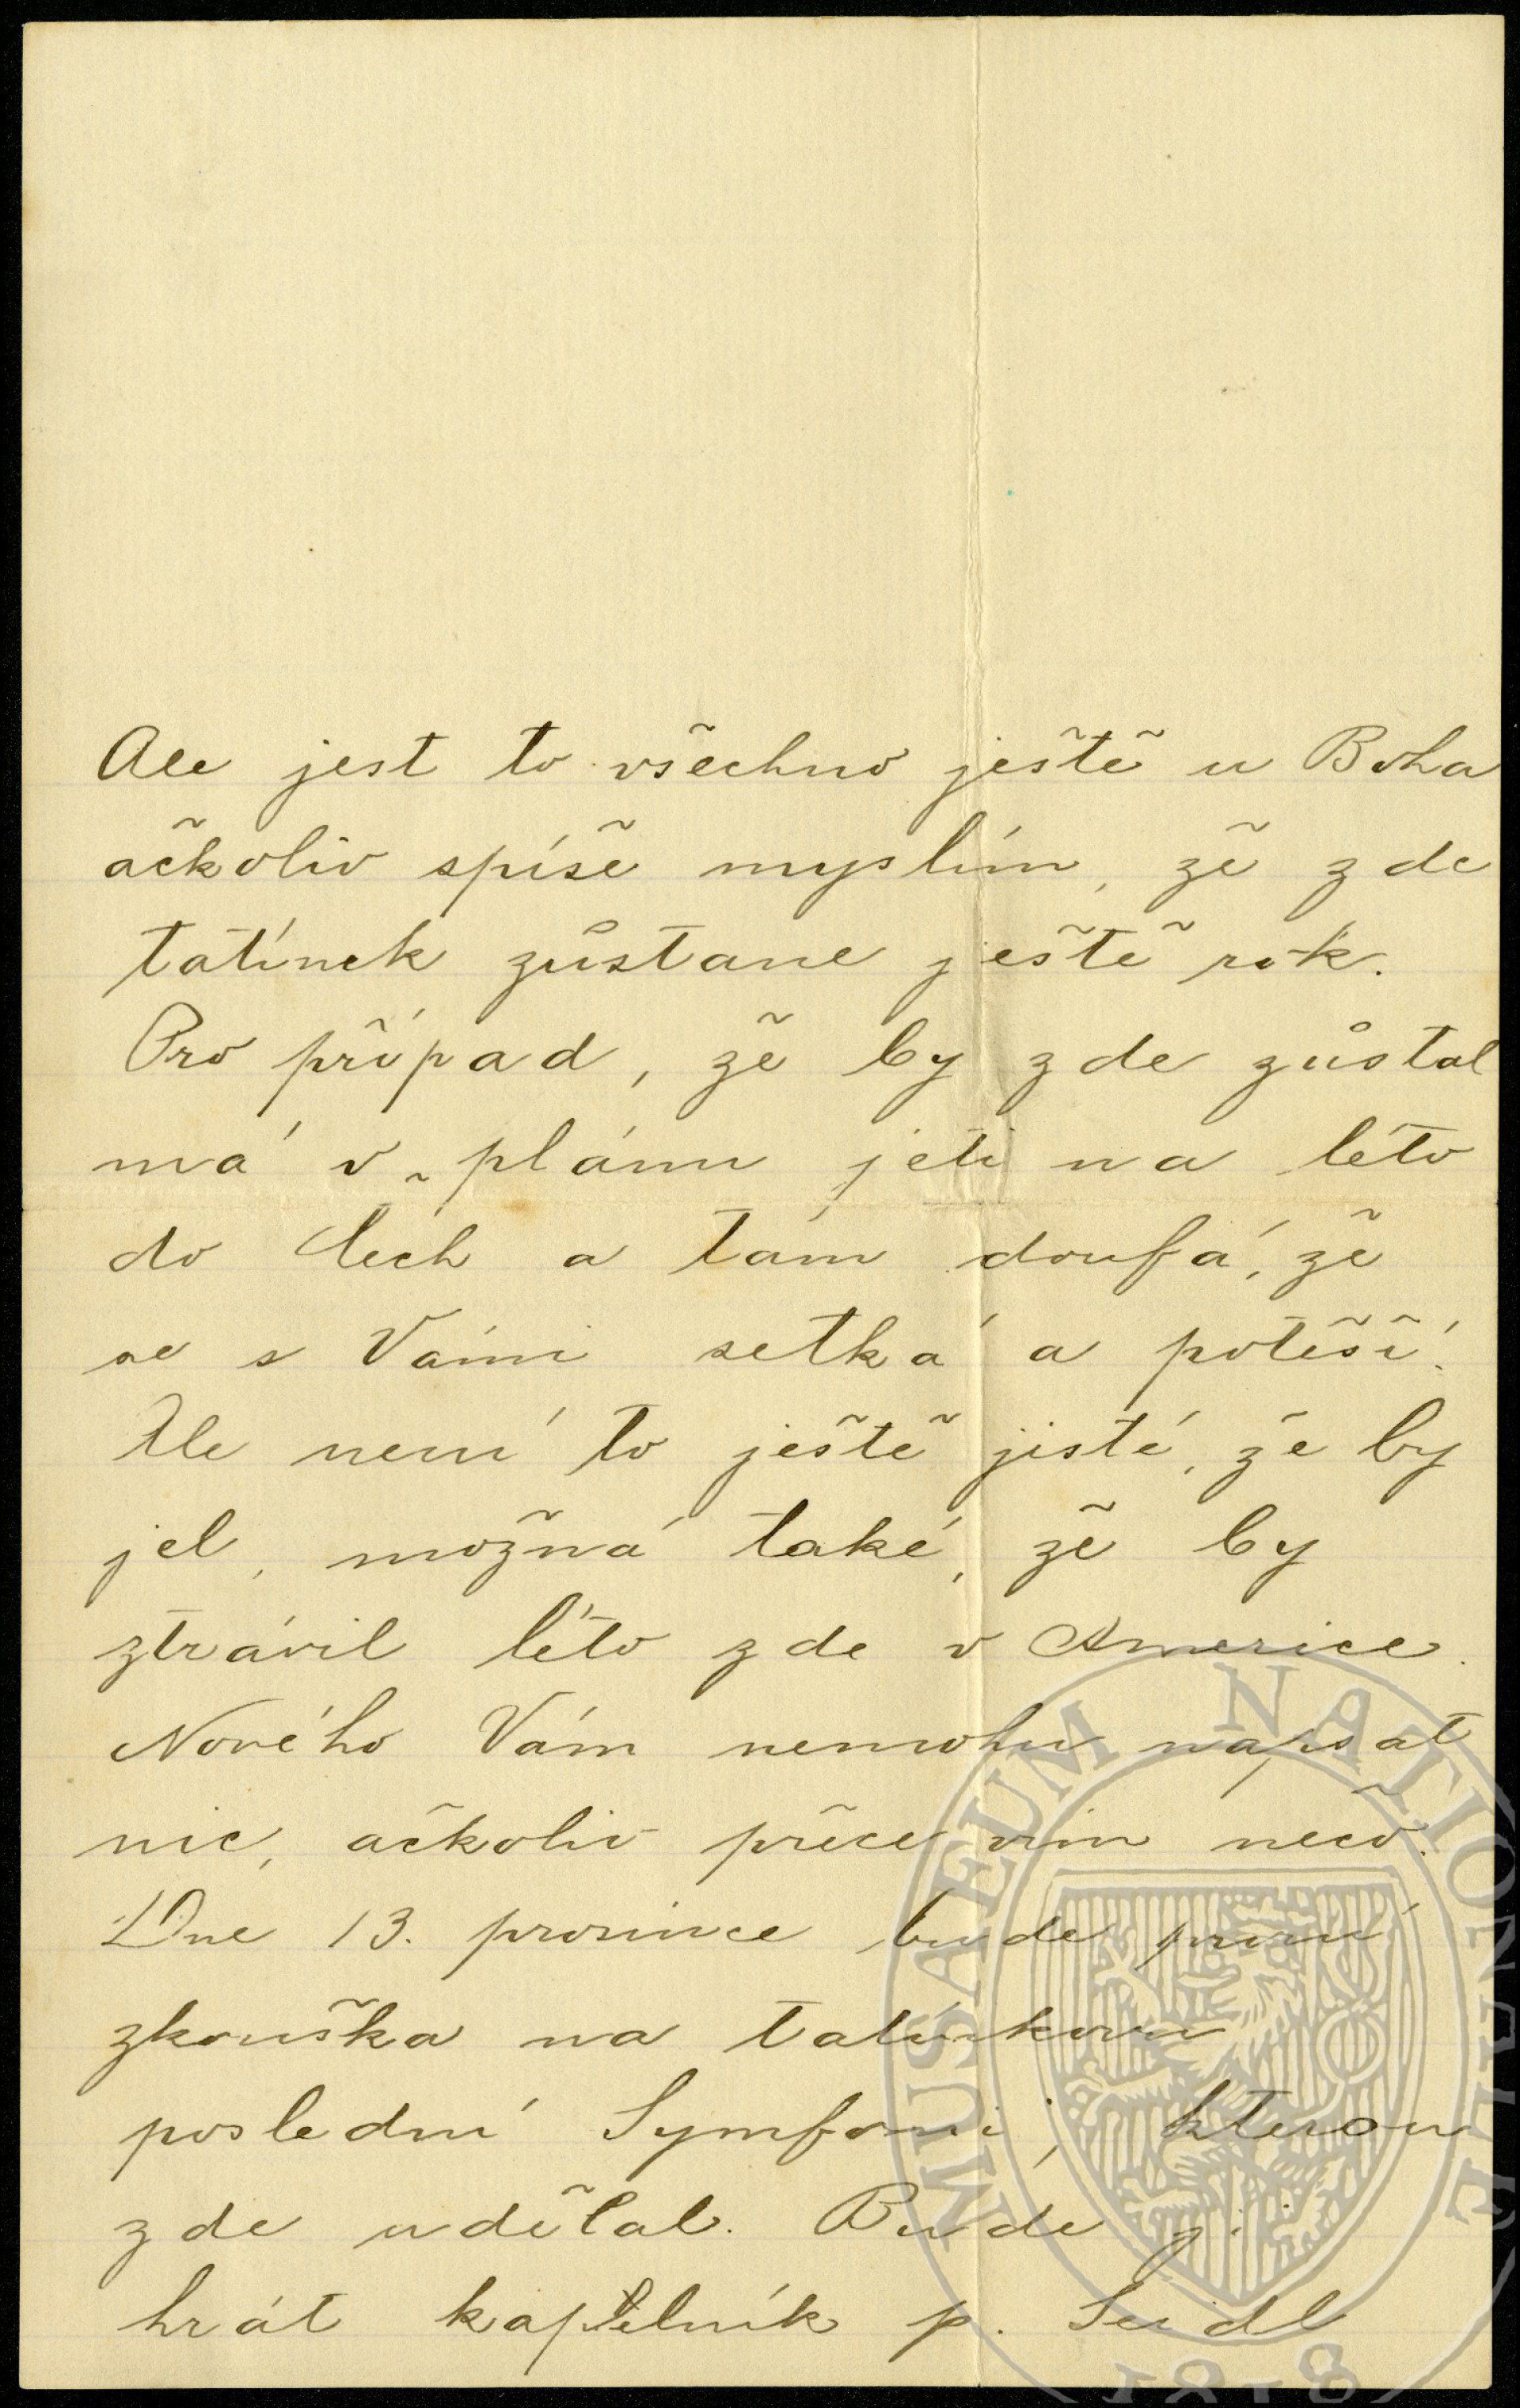 Ale jest to všechno ještě u Boha
ačkoliv spíše myslím, že zde
tatínek zůstane ještě rok.
Pro případ, že by zde zůstal
má v plánu jeti na léto
do Čech a tam doufá, že
se s Vámi setká a potěší.
Ale není to ještě jisté, že by
jel, možná také, že by
ztrávil léto zde v Americe.
Nového Vám nemohu napsat
nic, ačkoliv přece vím něco.
Dne 13. prosince bude první
zkouška na tatínkovu
poslední Symfonii, kterou
zde udělal. Bude ji
hrát kapelník p. Seidl
MUSAEUM NATIONALE
1818